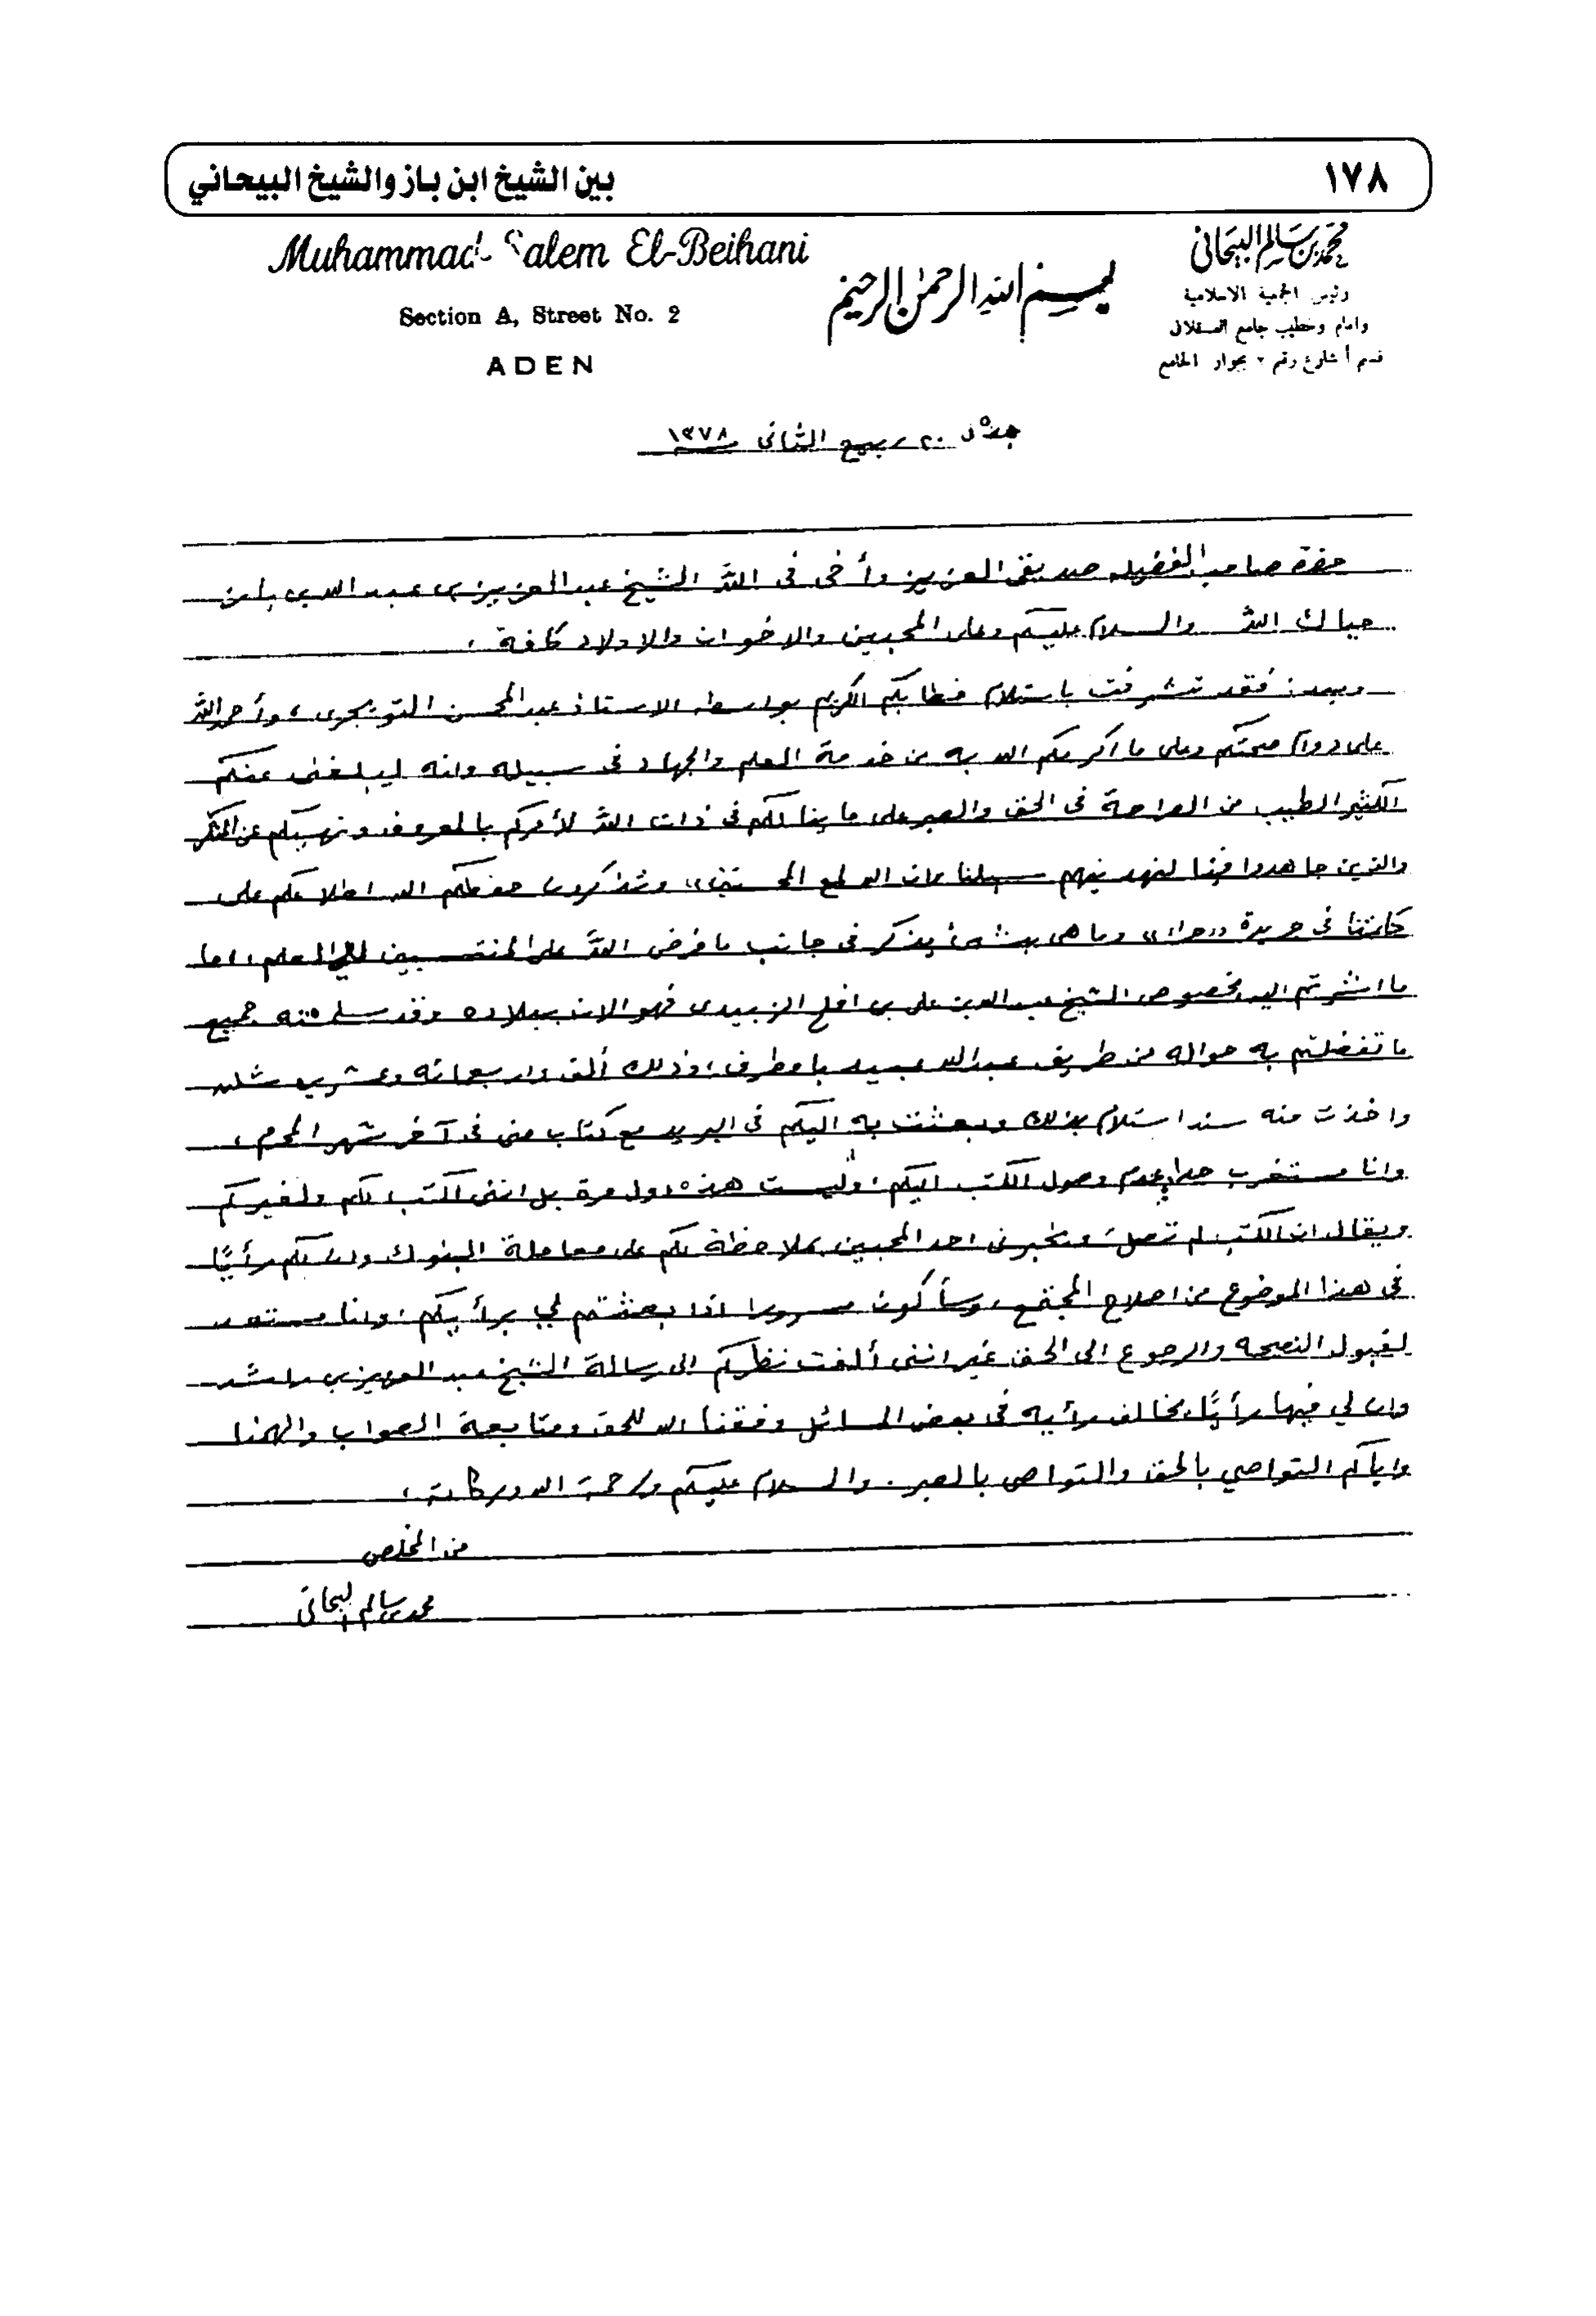 ١٧٨
بين الشيخ ابن باز والشيخ البيحاني
Muhammad Salem El-Beihani
Section A, Street No. 2
ADEN
بسم الله الرحمن الرحيم
محمد بن سالم البيحاني
رئيس الجمعية الاسلامية
وامام وخطيب جامع العسقلاني
قسم أ شارع رقم ٢ بجوار الجامع
٢٠ ربيع الثاني ١٣٧٨
حضرة صاحب الفضيله صديقى العزيز وأخى فى الله الشيخ عبد العزيز بن عبد الله بن باز
حياك الله والسلام عليكم وعلى المحبين والاخوان والاولاد كافة ،
وبعد : فقد تشرفت باستلام خطابكم الكريم بواسطه الاستاذ عبد المحسن التويجرى ، وأحمد الله
على دوام صحتكم وعلى ما اكرمكم الله به من خدمة العلم والجهاد فى سبيله وانه ليبلغنى عنكم
الكثير الطيب من الصراحة فى الحق والصبر على ما ينالكم فى ذات الله لأمركم بالمعروف ونهيكم عن المنكر
والذين جاهدوا فينا لنهدينهم سبلنا وان الله لمع المحسنين ،، وتذكرون حفظكم الله اطلاعكم على
كلمتنا فى جريدة ,, حراء ،، وما هى بشئ يذكر فى جانب ما فرض الله على المنتسبين الى العلم ، اما
ما اشرتم اليه بخصوص الشيخ عبد الله بن على بن افلح الزبيدى فهو الان ببلاده وقد سلمته جميع
ما تفضلتم به حواله من طريق عبد الله عبيد بامطرف ، وذلك ألف واربعمائه وعشرين شلن
واخذت منه سند استلام بذلك وبعثت به اليكم فى البريد مع كتاب منى فى آخر شهر المحرم ،
وانا مستغرب جدا بعدم وصول الكتب اليكم ، وليست هذه اول مرة بل اننى اكتب لكم ولغيركم
ويقال ان الكتب لم تصل ، ويخبرنى احد المحبين بملاحظة لكم على معاملة البنوك وان لكم رأيًا
فى هذا الموضوع من اصلاح المجتمع ، وسأكون مسرورا اذا بعثتم لي برأيكم ، وانا مستعد
لقبول النصحه والرجوع الى الحق غير اننى ألفت نظركم الى رسالة الشيخ عبد العزيز بن راشد
وان لي فيها رأيًا يخالف رأيه فى بعض المسائل وفقنا الله للحق ومتابعة الصواب والهمنا
واياكم التواصي بالحق والتواصى بالصبر . والسلام عليكم ورحمة الله وبركاته ،
من المخلص
محمد بن سالم البيحانى